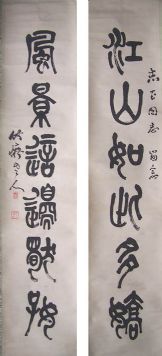 江山如此多嬌
同志
風景這邊獨好
老人